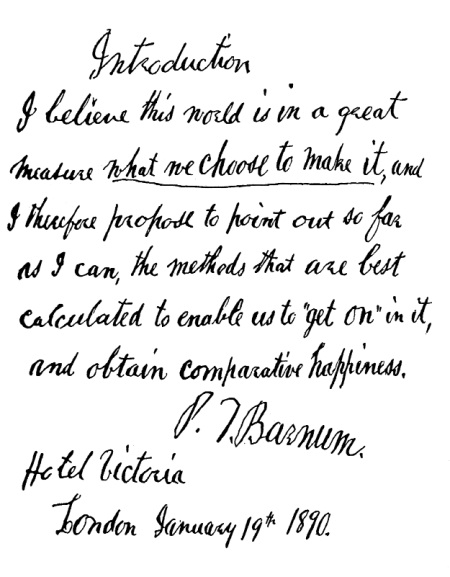 Introduction
I believe this world is in a great
measure what we choose to make it, and
I therefore propose to point out so far
as I can, the methods that are best
calculated to enable us to "get on" in it,
and obtain comparative happiness.
P. T. Barnum.
Hotel Victoria
London January 19th 1890.